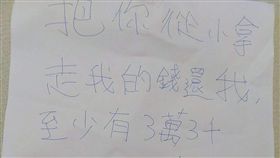 把你從小拿
走我的錢還我,
至少有3萬3+